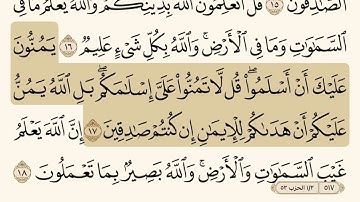 الصَّـٰدِقُونَ ١٥ قُلْ أَتُعَلِّمُونَ ٱللَّهَ بِدِينِكُمْ وَٱللَّهُ يَعْلَمُ مَا فِى
ٱلسَّمَـٰوَٰتِ وَمَا فِى ٱلْأَرْضِ ۚ وَٱللَّهُ بِكُلِّ شَىْءٍ عَلِيمٌ ١٦ يَمُنُّونَ
عَلَيْكَ أَنْ أَسْلَمُوا۟ ۖ قُل لَّا تَمُنُّوا۟ عَلَىَّ إِسْلَـٰمَكُم ۖ بَلِ ٱللَّهُ يَمُنُّ
عَلَيْكُمْ أَنْ هَدَىٰكُمْ لِلْإِيمَـٰنِ إِن كُنتُمْ صَـٰدِقِينَ ١٧ إِنَّ ٱللَّهَ يَعْلَمُ
غَيْبَ ٱلسَّمَـٰوَٰتِ وَٱلْأَرْضِ ۚ وَٱللَّهُ بَصِيرٌۢ بِمَا تَعْمَلُونَ ١٨
٥١٧ ١/٢ الحزب ٥٢